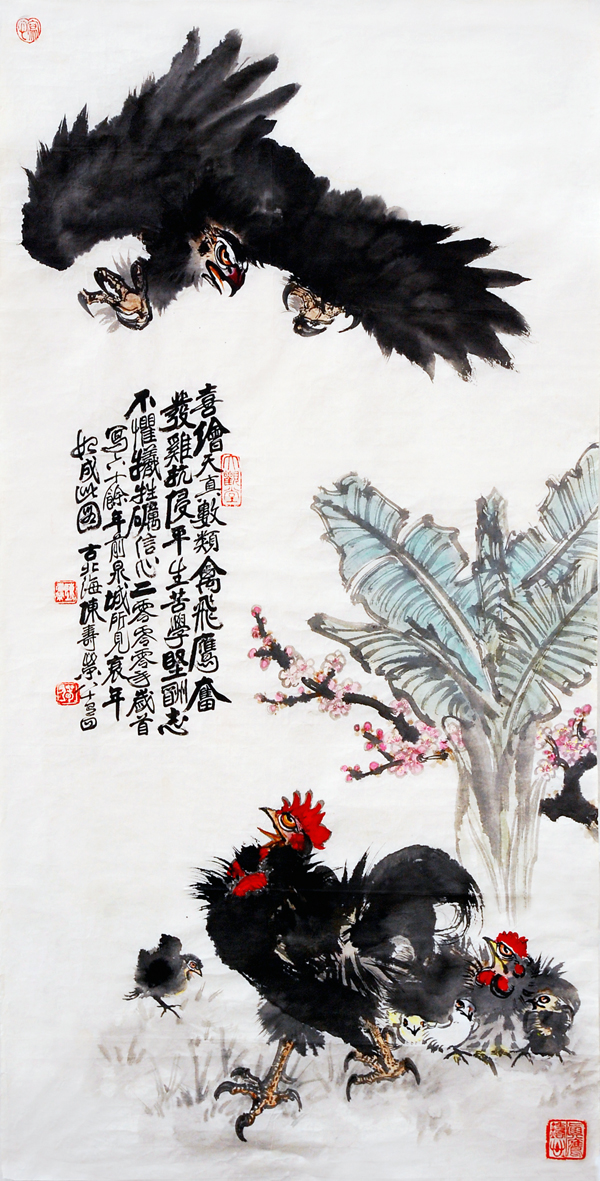 喜繪天真數類禽飛鷹奮
發雞抗侵平生苦學堅酬志
不懼犧牲礪信心二零零零年歲首
寫六十餘年前泉城所見衰年
始成此圖 古北海陳壽榮八十又四